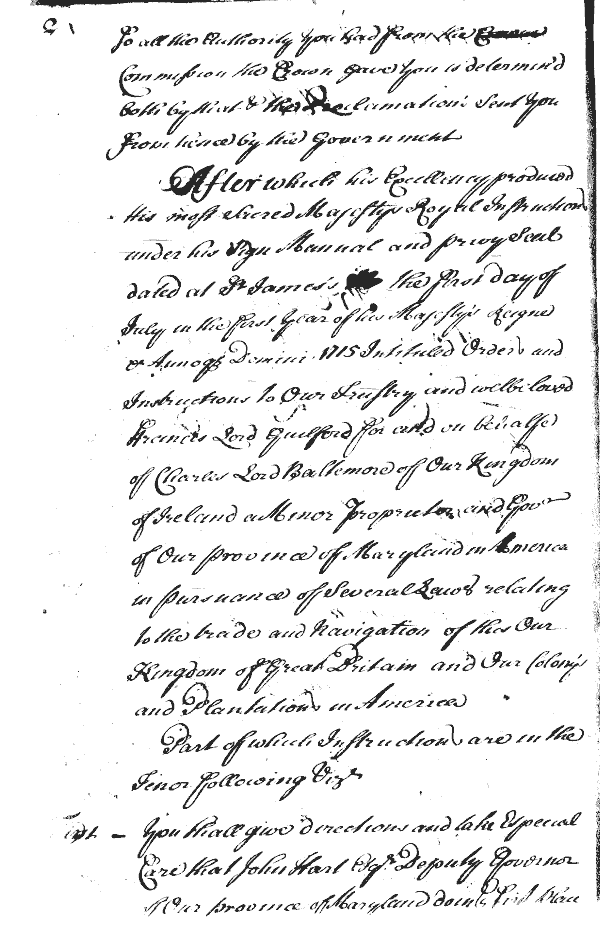 So all the Authority you had from the
Commission the Crown gave you is determin'd
both by that & the Proclamations Sent you
from hence by the Government
After which his Excellency produced
his most Sacred Majestys Royal Instructions
under his Sign Manual and privy Seal
dated at St James's the first day of
July in the first Year of his Majestys Reigne
& Annoq Domini 1715 Intituled Orders and
Instructions to Our Trusty and welbeloved
Francis Lord Guilford for and on behalfe
of Charles Lord Baltemore of Our Kingdom
of Ireland a Minor Proprietor and Govr
of Our province of Maryland in America
in pursuance of Several Laws relating
to the trade and Navigation of this Our
Kingdom of Great Britain and Our Colonys
and Plantations in America
Part of which Instructions are in the
Tenor following Vizt
1st - You shall give directions and take Especial
Care that John Hart Esqr Deputy Governor
of Our province of Maryland do in the first place